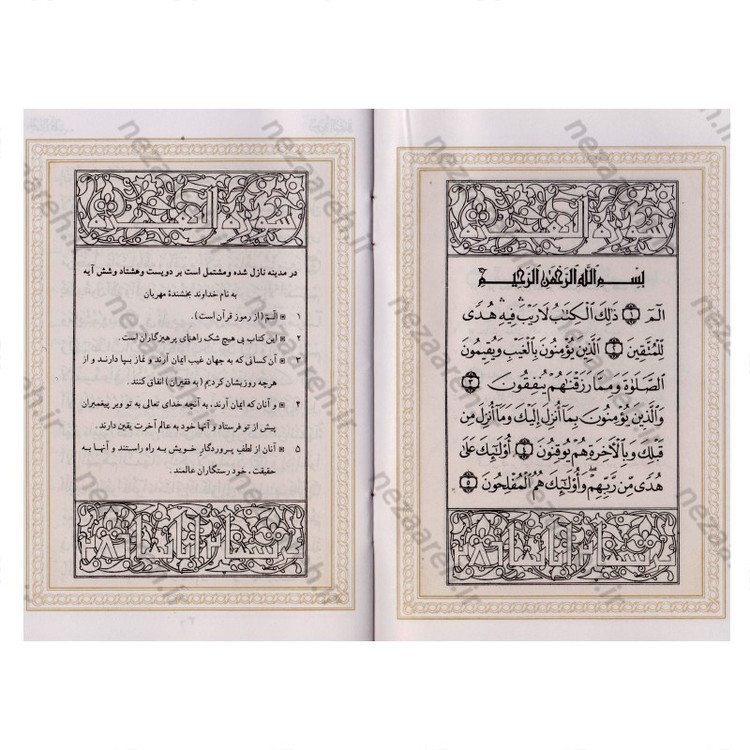 بِسْمِ اللَّهِ الرَّحْمٰنِ الرَّحِيمِ
الٓمٓ ۝١ ذَٰلِكَ الْكِتَابُ لَا رَيْبَ ۛ فِيهِ ۛ هُدًى
لِلْمُتَّقِينَ ۝٢ الَّذِينَ يُؤْمِنُونَ بِالْغَيْبِ وَيُقِيمُونَ
الصَّلَوٰةَ وَمِمَّا رَزَقْنَاهُمْ يُنْفِقُونَ ۝٣
وَالَّذِينَ يُؤْمِنُونَ بِمَا أُنْزِلَ إِلَيْكَ وَمَا أُنْزِلَ مِنْ
قَبْلِكَ وَبِالْآخِرَةِ هُمْ يُوقِنُونَ ۝٤ أُولَٰئِكَ عَلَىٰ
هُدًى مِنْ رَبِّهِمْ ۖ وَأُولَٰئِكَ هُمُ الْمُفْلِحُونَ ۝٥
در مدینه نازل شده و مشتمل است بر دویست و هشتاد و شش آیه
به نام خداوند بخشندهٔ مهربان
۱ الٓمٓ (از رموز قرآن است).
۲ این کتاب بی هیچ شک راهنمای پرهیزگاران است.
۳ آن کسانی که به جهان غیب ایمان آرند و نماز بپا دارند و از
هرچه روزیشان کردیم (به فقیران) انفاق کنند.
۴ و آنان که ایمان آرند، به آنچه خدای تعالی به تو و بر پیغمبران
پیش از تو فرستاد و آنها خود به عالم آخرت یقین دارند.
۵ آنان از لطف پروردگار خویش به راه راستند و آنها به
حقیقت، خود رستگاران عالمند.
nezaareh.ir